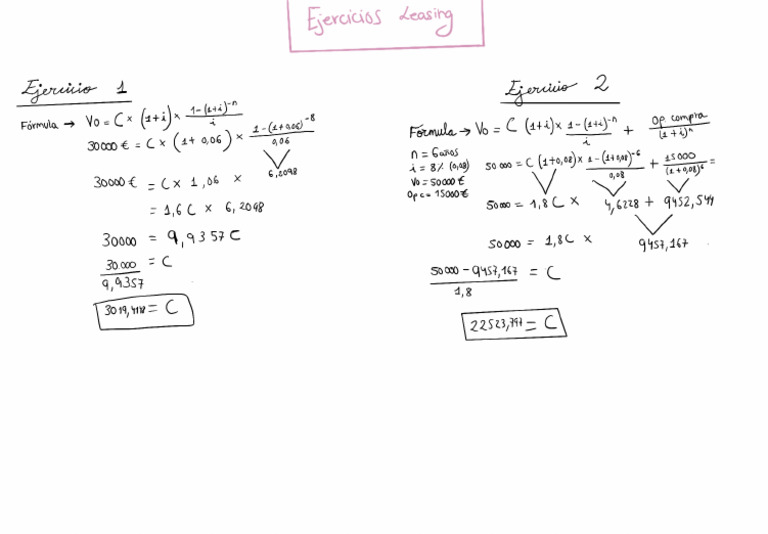 Ejercicios Leasing
Ejercicio 1
Fórmula → Vo = C × (1+i) × 1-(1+i)^-n / i
30000 € = C × (1 + 0,06) × 1-(1+0,06)^-8 / 0,06
6,2098
30000 € = C × 1,06 ×
= 1,6 C × 6,2098
30000 = 9,9357 C
30000 / 9,9357 = C
3019,4118 = C
Ejercicio 2
Fórmula → Vo = C (1+i) × 1-(1+i)^-n / i + Op compra / (1+i)^n
n = 6 años
i = 8% (0,08)
Vo = 50000 €
Opc = 15000 €
50000 = C (1+0,08) × 1-(1+0,08)^-6 / 0,08 + 15000 / (1+0,08)^6 =
50000 = 1,8 C × 4,6228 + 9452,544
50000 = 1,8 C × 9457,167
50000 - 9457,167 / 1,8 = C
22523,797 = C